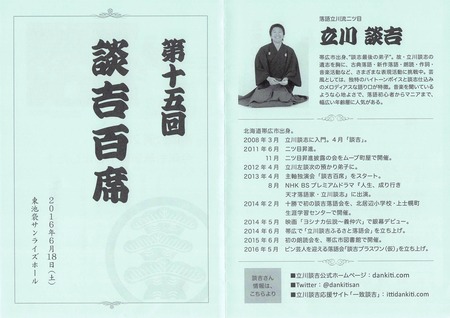 第十五回
談吉百席
2016年6月18日（土）
東池袋サンライズホール
落語立川流二ツ目
立川 談吉
帯広市出身。“談志最後の弟子”。故・立川談志の
遺志を胸に、古典落語・新作落語・朗読・作詞・
音楽活動など、さまざまな表現活動に挑戦中。芸
風としては、独特のハイトーンボイスと談志仕込み
のメロディアスな語り口が特徴。音楽を聞いている
ような心地よさで、落語初心者からマニアまで、
幅広い年齢層に人気がある。
北海道帯広市出身。
2008年3月 立川談志に入門。4月「談吉」。
2011年6月 二ツ目昇進。
11月 二ツ目昇進披露の会をムーブ町屋で開催。
2012年4月 立川左談次の預かり弟子に。
2013年4月 主軸独演会「談吉百席」をスタート。
8月 NHK BSプレミアムドラマ『人生、成り行き
天才落語家・立川談志』に出演。
2014年2月 十勝で初の談吉落語会を、北居辺小学校・上士幌町
生涯学習センターで開催。
2014年5月 映画『ヨシナカ伝説～義仲穴』で銀幕デビュー。
2014年6月 帯広で「立川談吉ふるさと落語会」を立ち上げ。
2015年6月 初の朗読会を、帯広市図書館で開催。
2016年5月 ピン芸人を迎える落語会「談吉プラスワン（仮）」を立ち上げ。
談吉さん
情報は、
こちらより
■立川談吉公式ホームページ：dankiti.com
■Twitter：@dankitisan
■立川談吉応援サイト「一致談吉」：ittidankiti.com